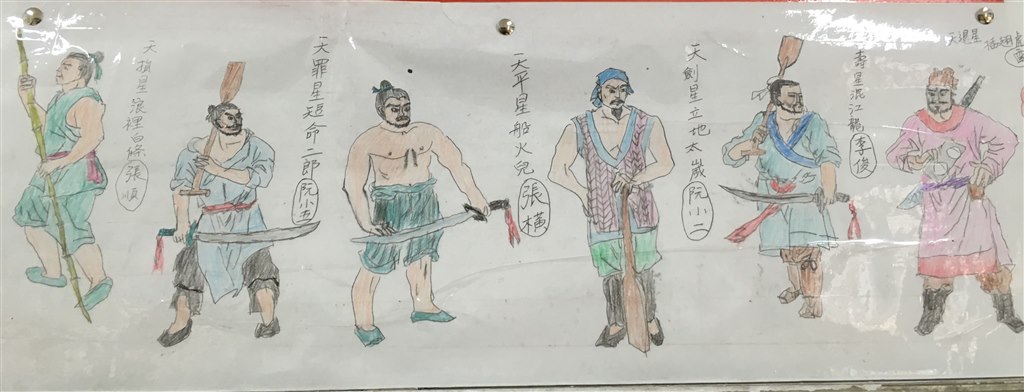 天退星插翅虎雷
壽星混江龍李俊
天劍星立地太歲阮小二
天平星船火兒張橫
天罪星短命二郎阮小五
天損星浪裡白條張順